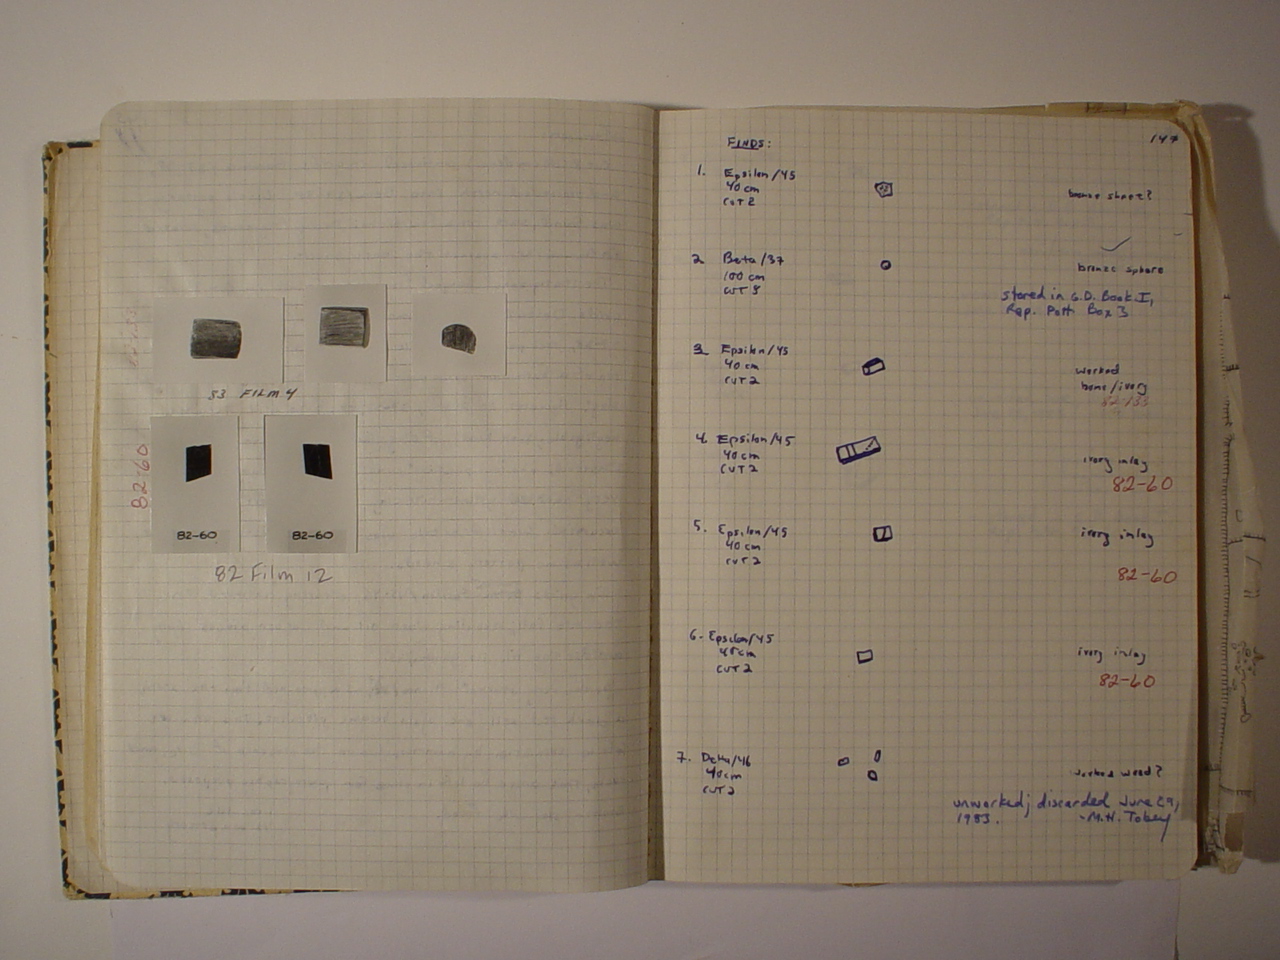 83 FILM 4
82-60
82-60
82-60
82 Film 12
147
FINDS:
1. Epsilon/45
40 cm
CUT 2
bronze sheet?
2. Beta/37
100 cm
bronze sphere
stored in G.D. Book I,
Rep. Pott. Box 3
3. Epsilon/45
40 cm
CUT 2
worked
bone/ivory
4. Epsilon/45
40 cm
CUT 2
ivory inlay
82-60
5. Epsilon/45
40 cm
CUT 2
ivory inlay
82-60
6. Epsilon/45
CUT 2
ivory inlay
82-60
7. Delta/46
40cm
CUT 2
worked wood?
unworked; discarded June 29,
1983. -M.H. Tobey